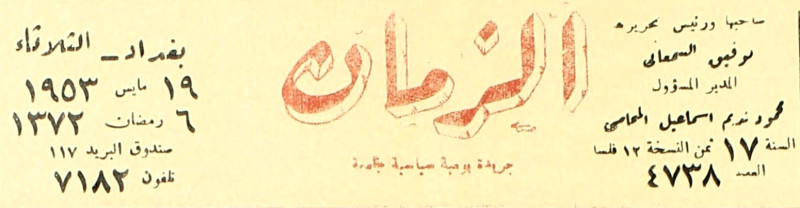 صاحبها ورئيس تحريره
توفيق السمعاني
المدير المسؤول
محمود نديم اسماعيل المحامي
السنة ١٧ ثمن النسخة ١٢ فلسا
العدد ٤٧٣٨
الزمان
جريدة يومية سياسية جامعة
بغداد - الثلاثاء
١٩ مايس ١٩٥٣
٦ رمضان ١٣٧٢
صندوق البريد ١١٧
تلفون ٧١٨٢